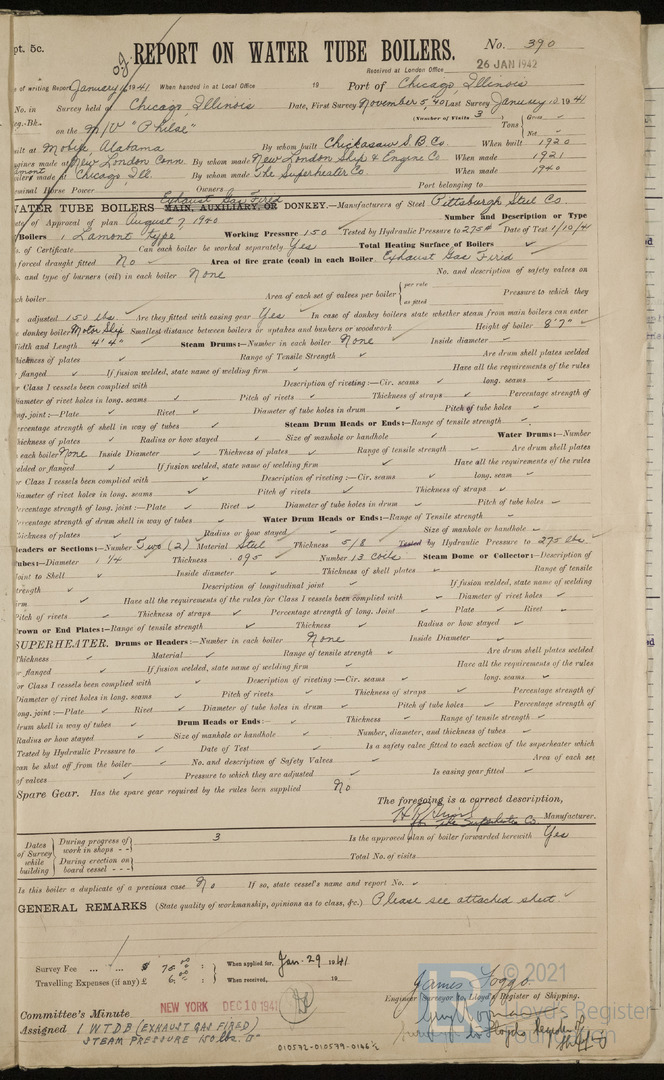 pt. 5c.
REPORT ON WATER TUBE BOILERS.
No. 390
Received at London Office 26 JAN 1942
of writing Report January 1941 When handed in at Local Office 19 Port of Chicago, Illinois
No. in Survey held at Chicago, Illinois Date, First Survey November 5, 40 Last Survey January 10 1941
eg.-Bk. (Number of Visits 3)
on the M/V "Philae" Tons Gross Net
uilt at Mobile, Alabama By whom built Chickasaw S.B. Co. When built 1920
ngines made at New London Conn. By whom made New London Ship & Engine Co When made 1921
oilers made at Chicago, Ill. By whom made The Superheater Co. When made 1940
ominal Horse Power Owners Port belonging to
Exhaust Gas Fired
WATER TUBE BOILERS MAIN, AUXILIARY, OR DONKEY.—Manufacturers of Steel Pittsburgh Steel Co.
ate of Approval of plan August 7 1940 Number and Description or Type
Boilers 1 Lamont type Working Pressure 150 Tested by Hydraulic Pressure to 275# Date of Test 1/10/41
o. of Certificate Can each boiler be worked separately Yes Total Heating Surface of Boilers
forced draught fitted No Area of fire grate (coal) in each Boiler Exhaust Gas Fired
o. and type of burners (oil) in each boiler None No. and description of safety valves on
ch boiler Area of each set of valves per boiler per rule as fitted Pressure to which they
adjusted 150 lbs. Are they fitted with easing gear Yes In case of donkey boilers state whether steam from main boilers can enter
e donkey boiler Motor Ship Smallest distance between boilers or uptakes and bunkers or woodwork Height of boiler 8'7"
Width and Length 4'4" Steam Drums:—Number in each boiler None Inside diameter
hickness of plates Range of Tensile Strength Are drum shell plates welded
flanged If fusion welded, state name of welding firm Have all the requirements of the rules
r Class I vessels been complied with Description of riveting:—Cir. seams long. seams
iameter of rivet holes in long. seams Pitch of rivets Thickness of straps Percentage strength of
ng. joint:—Plate Rivet Diameter of tube holes in drum Pitch of tube holes
ercentage strength of shell in way of tubes Steam Drum Heads or Ends:—Range of tensile strength
hickness of plates Radius or how stayed Size of manhole or handhole Water Drums:—Number
each boiler None Inside Diameter Thickness of plates Range of tensile strength Are drum shell plates
elded or flanged If fusion welded, state name of welding firm Have all the requirements of the rules
or Class I vessels been complied with Description of riveting:—Cir. seams long. seam
iameter of rivet holes in long. seams Pitch of rivets Thickness of straps
ercentage strength of long. joint:—Plate Rivet Diameter of tube holes in drum Pitch of tube holes
ercentage strength of drum shell in way of tubes Water Drum Heads or Ends:—Range of Tensile strength
hickness of plates Radius or how stayed Size of manhole or handhole
eaders or Sections:—Number Two (2) Material Steel Thickness 5/8 Tested by Hydraulic Pressure to 275 lbs.
ubes:—Diameter 1 1/4 Thickness .095 Number 13 Coils Steam Dome or Collector:—Description of
oint to Shell Inside diameter Thickness of shell plates Range of tensile
trength Description of longitudinal joint If fusion welded, state name of welding
irm Have all the requirements of the rules for Class I vessels been complied with Diameter of rivet holes
itch of rivets Thickness of straps Percentage strength of long. Joint Plate Rivet
Crown or End Plates:—Range of tensile strength Thickness Radius or how stayed
SUPERHEATER. Drums or Headers:—Number in each boiler None Inside Diameter
hickness Material Range of tensile strength Are drum shell plates welded
r flanged If fusion welded, state name of welding firm Have all the requirements of the rules
or Class I vessels been complied with Description of riveting:—Cir. seams long. seams
Diameter of rivet holes in long. seams Pitch of rivets Thickness of straps Percentage strength of
ong. joint:—Plate Rivet Diameter of tube holes in drum Pitch of tube holes Percentage strength of
drum shell in way of tubes Drum Heads or Ends:— Thickness Range of tensile strength
Radius or how stayed Size of manhole or handhole Number, diameter, and thickness of tubes
Tested by Hydraulic Pressure to Date of Test Is a safety valve fitted to each section of the superheater which
can be shut off from the boiler No. and description of Safety Valves Area of each set
of valves Pressure to which they are adjusted Is easing gear fitted
Spare Gear. Has the spare gear required by the rules been supplied No
The foregoing is a correct description,
for The Superheater Co. Manufacturer.
Dates of Survey while building During progress of work in shops - - 3 Is the approved plan of boiler forwarded herewith Yes
During erection on board vessel - - - Total No. of visits
Is this boiler a duplicate of a previous case No If so, state vessel's name and report No.
GENERAL REMARKS (State quality of workmanship, opinions as to class, &c.) Please see attached sheet.
Survey Fee ... ... $ 75.00 : When applied for, Jan. 29 1941
Travelling Expenses (if any) £ 6.00 : When received, 19
James Foggo
Engineer Surveyor to Lloyd's Register of Shipping.
Committee's Minute NEW YORK DEC 10 1941
Assigned 1 WTDB (EXHAUST GAS FIRED)
STEAM PRESSURE 150 lbs.
010572-010579-0146 1/2
© 2021
Lloyd's Register
Foundation